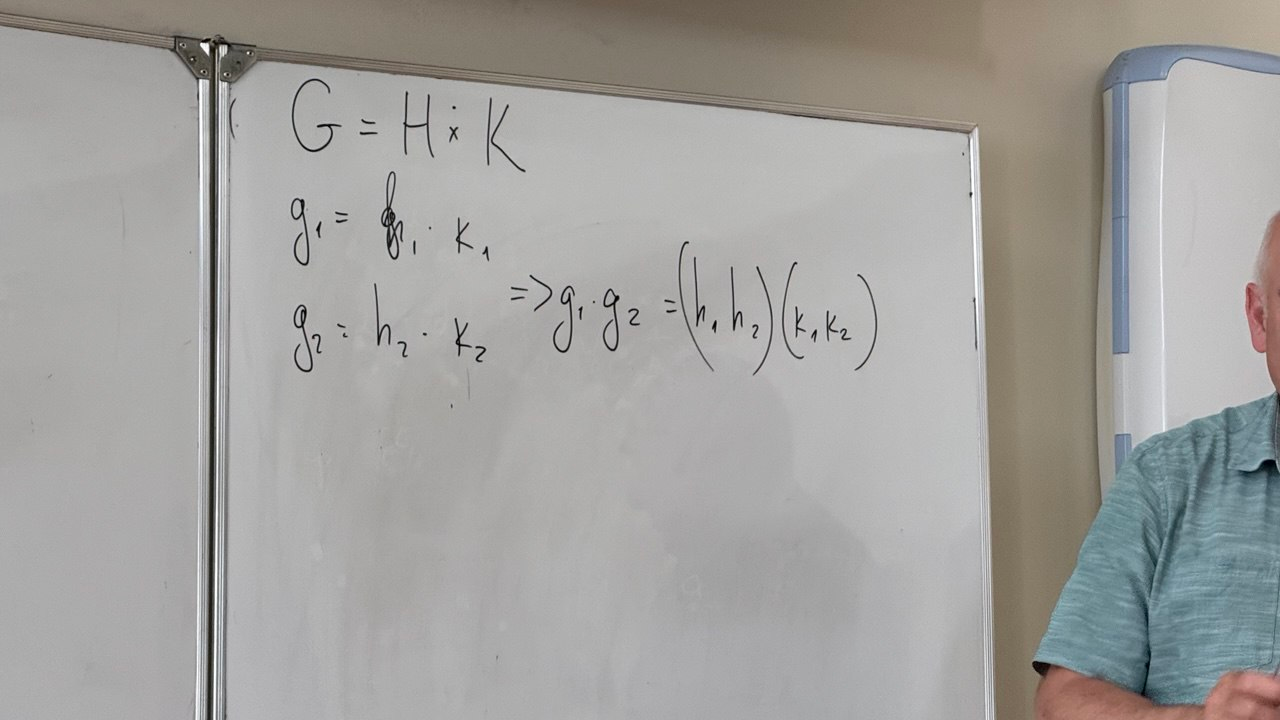 G = H ⨰ K
g₁ = h₁ · k₁
g₂ = h₂ · k₂ => g₁ · g₂ = (h₁ h₂)(k₁k₂)